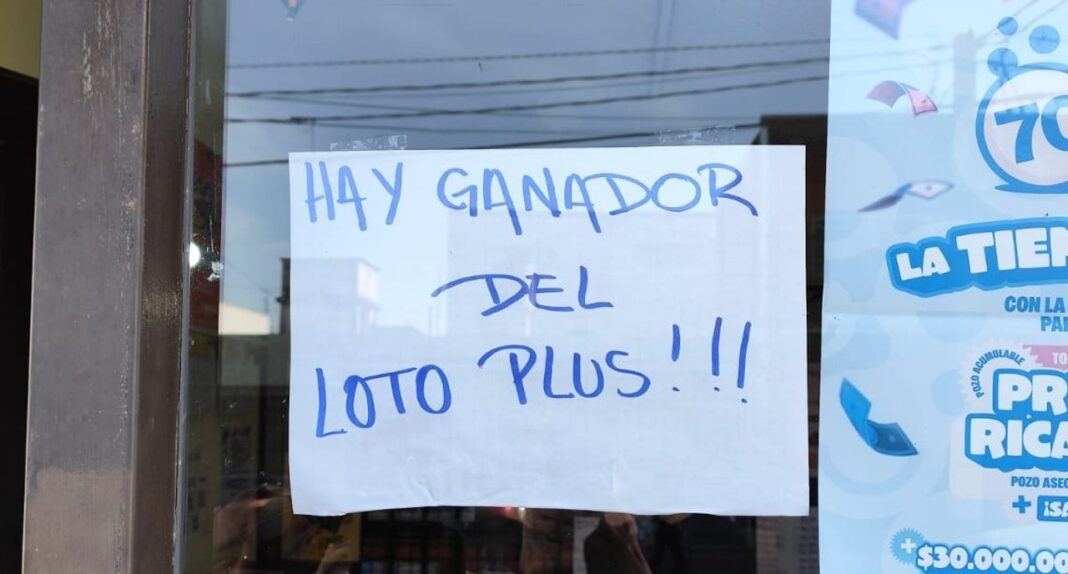 HAY GANADOR
DEL
LOTO PLUS!!!
70
LA TIEN
CON LA
PAR
POZO ACUMULABLE
TO
PR
RICA
POZO ASEG
+ ¡SA
+$30.000.00